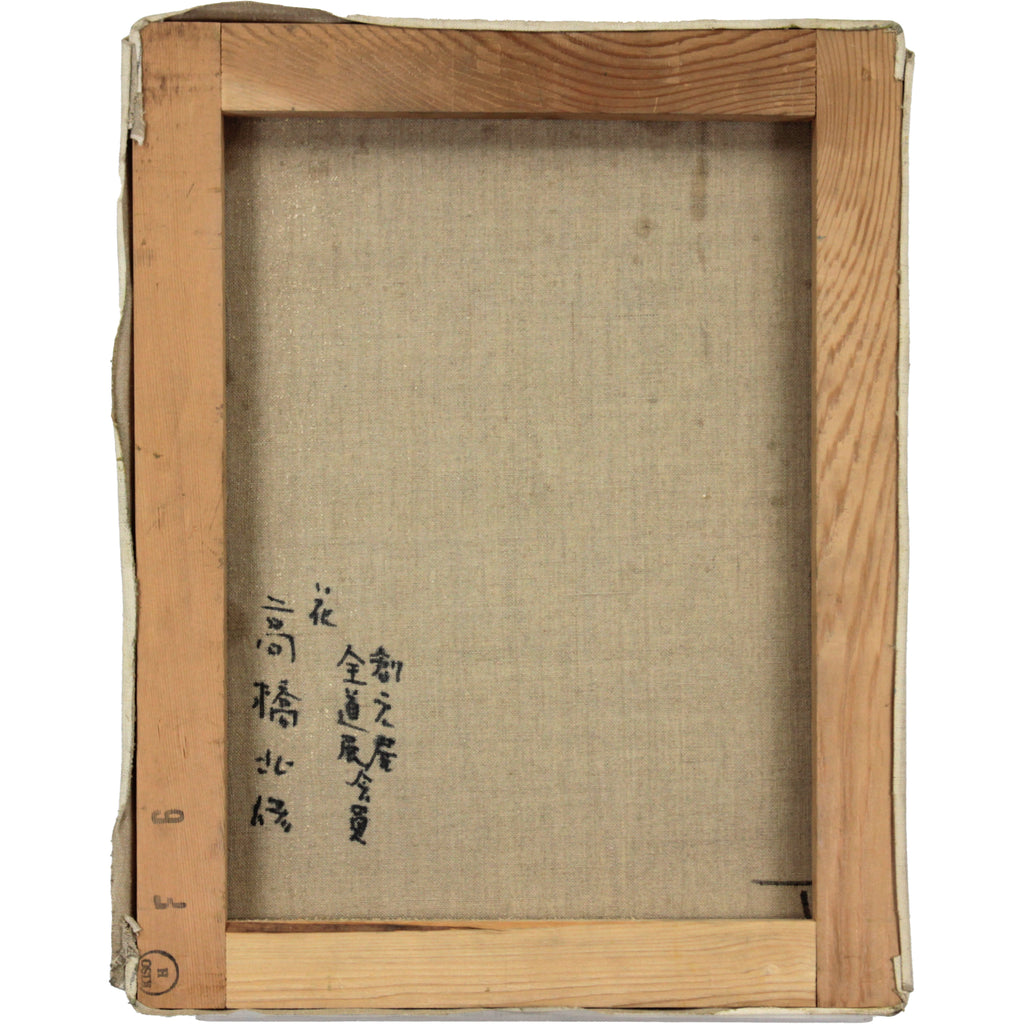 創元展
全道展会員
花
高橋北修
6
F
H
KISO